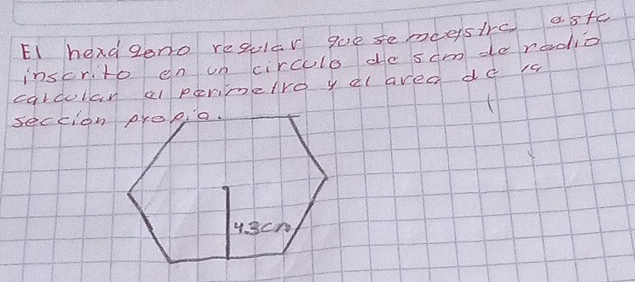 El hexagono regular que se mcestra esta
inscrito en un circulo de 5cm de radio
calcular el perimetro y el area de la
seccion propia.
4.3cm